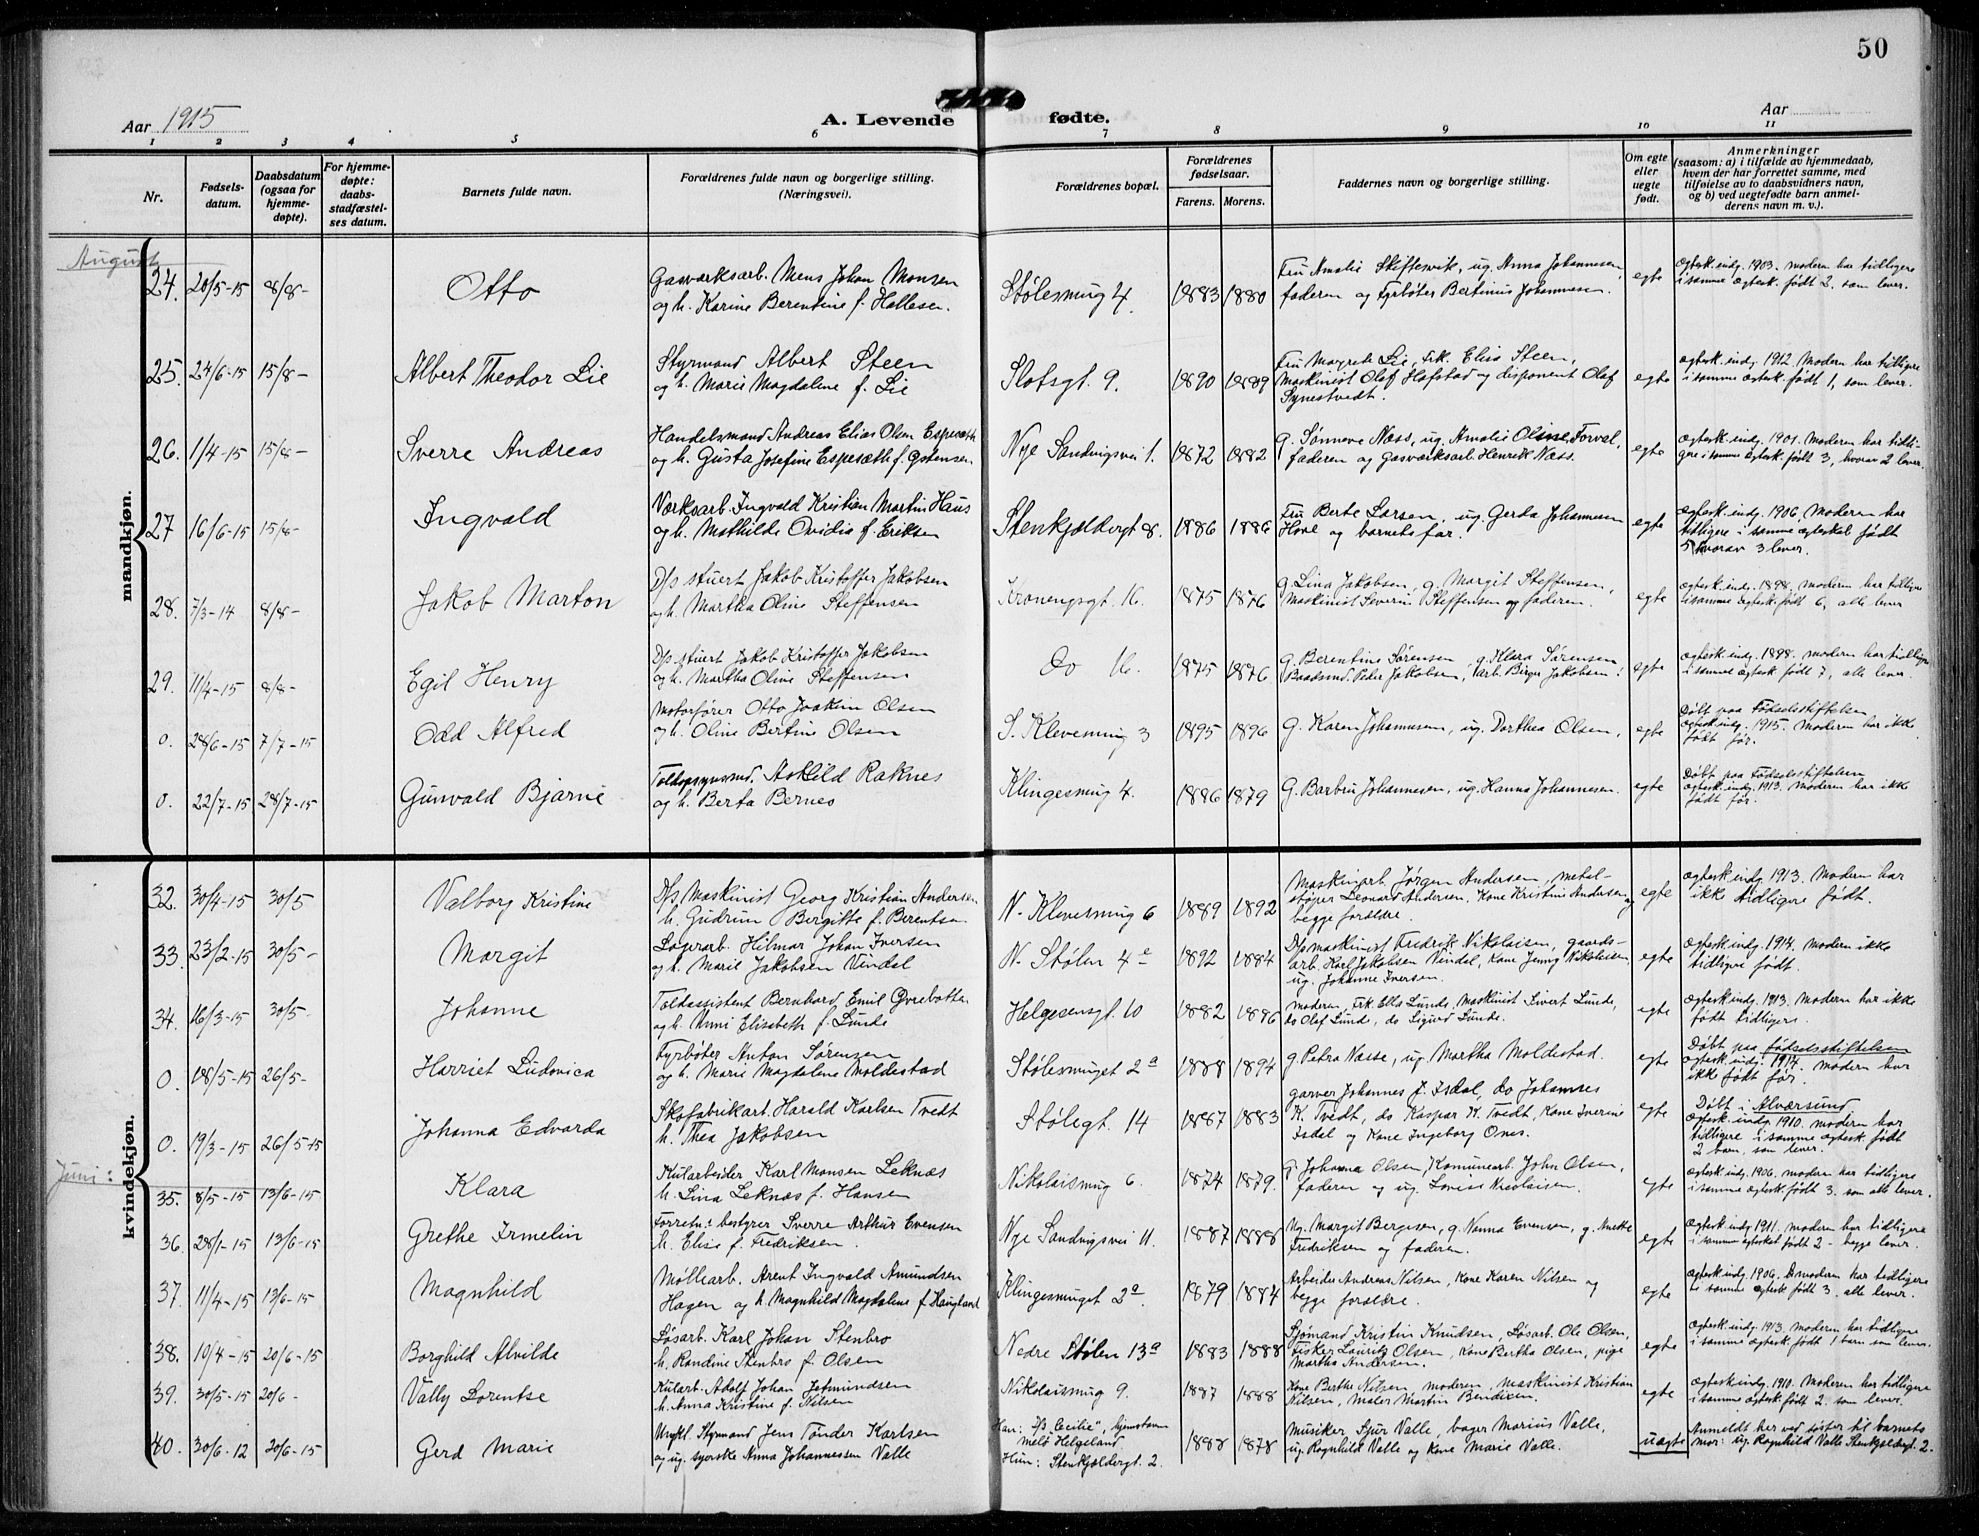 50
Aar 1915
A. Levende fødte.
Aar
1 2 3 4 5 6 7 8 9 10 11
Nr.
Fødsels-
datum.
Daabsdatum
(ogsaa for
hjemme-
døpte).
For hjemme-
døpte:
daabs-
stadfæstel-
ses datum.
Barnets fulde navn.
Forældrenes fulde navn og borgerlige stilling.
(Næringsvei).
Forældrenes bopæl.
Forældrenes
fødselsaar.
Farens. Morens.
Faddernes navn og borgerlige stilling.
Om egte
eller
uegte
født.
Anmerkninger
(saasom: a) i tilfælde av hjemmedaab,
hvem der har forrettet samme, med
tilføielse av to daabsvidners navn,
og b) ved uegtefødte barn anmel-
derens navn m. v.).
August
mandkjøn.
24. 20/5-15 8/8- Otto
Gasværksarb. Mens Johan Monsen
og h. Karine Berentine f. Hallesen.
Stølesmug 4. 1883 1880
Fru Amalie Skiftesvik, ug. Anna Johannesen,
faderen og Fyrbøter Bertinius Johannesen.
egte
egtesk. indg. 1903. moderen har tidligere
i samme egtesk. født 2. som lever.
25. 24/6-15 15/8- Albert Theodor Lie
Styrmand Albert Steen
og h. Marie Magdalene f. Lie
Slotsgt. 9. 1890 1889
Fru Magrete Lie, frk. Elisa Steen,
Maskinist Olaf Hafstad og disponent Olaf
Synestvedt.
egte
egtesk. indg. 1912. Modern har tidligere
i samme egtesk. født 1, som lever.
26. 1/4-15 15/8- Sverre Andreas
Handelsmand Andreas Elias Olsen Espesæth
og h. Gusta Josefine Espesæth f. Østensen.
Nye Sandvigsvei 1. 1872 1882
g. Sønneve Næss, ug. Amalie Oline Forval,
faderen og Gasværksarb. Henrik Næss.
egte
egtesk. indg. 1901. Moderen har tidli-
gere i samme egtesk. født 3, hvorav 2 lever.
27 16/6-15 15/8- Ingvald
Værksarb. Ingvald Kristian Martin Haus
og h. Mathilde Ovidia f. Eriksen
Stenkjeldergt 8. 1886 1886
Fru Berte Larsen, ug. Gerda Johannesen
Hove og barnets far.
egte
egtesk. indg. 1906. Moderen har
tidligere i samme egteskab født
5 hvorav 3 lever.
28. 7/3-14 8/8- Jakob Marton
D/s stuert Jakob Kristoffer Jakobsen
og h. Martha Oline Steffensen
Kronengsgt. 16. 1875 1876
g. Lina Jakobsen, g. Margit Steffensen,
Maskinist Severin Steffensen og faderen.
egte
egtesk. indg. 1898. moderen har tidligere
i samme egtesk. født 6, alle lever
29. 11/4-15 8/8- Egil Henry
D/s stuert Jakob Kristoffer Jakobsen
og h. Martha Oline Steffensen
Do 16 1875 1876
g. Berentine Sørensen, g. Klara Sørensen,
Baadsmd. Peder Jakobsen, arb. Birger Jakobsen.
egte
egtesk. indg. 1898. moderen har tidligere
i samme egtesk. født 7, alle lever.
0. 28/6-15 7/7-15 Odd Alfred
Motorfører Otto Joakim Olsen
og h. Oline Bertine Olsen
S. Klevesmug 3 1895 1896
g. Karen Johannesen, ug. Dorthea Olsen,
egte
Døbt paa Fødselsstiftelsen
egtesk. indg. 1915. Moderen har ikke
født før.
0. 22/7-15 28/7-15 Gunvald Bjarne
Toldopsynsmd. Askild Raknes
og h. Berta Bernes
Klingesmug 4. 1886 1879
G. Barbru Johannesen, ug. Hanna Johannesen.
egte
Døbt paa Fødselsstiftelsen
egtesk. indg. 1913. Moderen har ikke
født før.
kvindekjøn.
32. 30/4-15 30/5 Valborg Kristine
D/s Maskinist Georg Kristian Andersen
h. Gudrun Bergitte f. Berentsen
N. Klevesmug 6 1889 1892
Maskinarb. Jørgen Andersen, metal-
støper Leonard Andersen, Kone Kristine Andersen og
begge forældre.
egte
egtesk. indg. 1913. Modern har
ikke tidligere født.
33. 23/2-15 30/5- Margit
Lagerarb. Hilmar Johan Iversen
og h. Marie Jakobsen Vindal
N. Stølen 4e 1892 1884
D/s maskinist Fredrik Nikolaisen, gaards-
arb. Karl Jakobsen Vindal, Kone Jenny Nikolaisen,
ug. Johanne Iversen.
egte
egtesk. indg. 1914. Modern ikke
tidligere født.
34. 16/3-15 30/5- Johanne
Toldassistent Bernhard Emil
og h. Unni Elisabeth f. Lunde
Helgesensgt. 10 1882 1886
moderen, Frk. Ella Lunde, Maskinist Sivert Lunde,
do Olaf Lunde, do Sigurd Lunde.
egte
egtesk. indg. 1913. Moderen har ikke
født tidligere.
0. 18/5-15 26/5- Harriet Ludovica
Fyrbøter Anton Sørensen
og h. Marie Magdalene Moldestad
Stølesmuget 2a 1888 1894
g. Petra Nasse, ug. Martha Moldestad.
egte
Døbt paa fødselsstiftelsen
egtesk. indg. 1914. Modern har
ikke født før.
0. 19/3-15 26/5-15 Johanna Edvarda
Skofabrikarb. Harald Karlsen Tvedt
h. Thea Jakobsen
Stølegt. 14 1887 1883
garver Johannes J. Isdal, do Johannes
K. Tvedt, do Kaspar K. Tvedt, Kone Iverine
Isdal og Kone Ingeborg Ones.
egte
Døbt i Alværsund
egtesk. indg. 1910. moderen har
tidligere i samme egtesk. født
2 barn, som lever.
Juni:
35. 8/5-15 13/6-15 Klara
Kularbeider Karl Monsen Leknæs
h. Lina Leknæs f. Hansen
Nikolaismug 6. 1874 1879.
G. Johanna Olsen, Komunearb. John Olsen,
faderen og ug. Lovise Nicolaisen.
egte
egtesk. indg. 1906. moderen har tidligere
i samme egtesk. født 3. som alle lever.
36. 28/1-15 13/6-15 Grethe Irmelin
Forretn.s bestyrer Sverre Arthur Evensen
h. Elise f. Fredriksen.
Nye Sandvigsvei 11. 1887 1888
Ug. Margit Bergesen, g. Nanna Evensen, g. Anette
Fredriksen og faderen.
egte
egtesk. indg. 1911. moderen har tidligere
i samme egteskab født 2 - begge lever.
37. 11/4-15 13/6-15 Magnhild
Møllearb. Arent Ingvald Amundsen
Hagen og h. Magnhild Magdalene f. Haugland
Klingesmuget 2a. 1879 1884
Arbeider Andreas Nilsen, Kone Karen Nilsen og
begge forældre.
egte
egtesk. indg. 1906. moderen har tidligere
i samme egtesk. født 3. alle lever.
38. 10/4-15 20/6-15 Borghild Alvilde
Løsarb. Karl Johan Stenbro
h. Randine Stenbro f. Olsen
Nedre Stølen 13a 1883 1888
Sjømand Kristin Knudsen, Løsarb. Ole Olsen,
Fisker Lauritz Olsen, Kone Bertha Olsen, pige
Martha Andersen.
egte
egtesk. indg. 1913. Moderen har tidligere
i samme egtesk. født 1 barn som lever.
39. 30/5-15 20/6- Vally Lorentse
Kularb. Adolf Johan Jetmundsen
h. Anna Kristine f. Nilsen
Nikolaismug 9. 1887 1888
Kone Berthe Nilsen, moderen, maskinist Kristian
Nilsen, Maler Martin Bendixen.
egte
egtesk. indg. 1910. Moderen har tidligere
i samme egtesk. født 2. som lever.
40. 30/6-12 20/6-15 Gerd Marie
Ungkl. Styrmand Jens Tønder Karlsen
og ug. syerske Anna Johannessen Valle
Han: D/s "Cecilie", hjemstavn
Melö Helgeland
Hun: Stenkjeldergt. 2. 1888 1878
Musiker Sjur Valle, bager Marius Valle,
ug. Ragnhild Valle og Kone Marie Valle.
uegte
Anmeldt her ved søster til barnets
mor: ug. Ragnhild Valle Stenkjeldergt. 2.